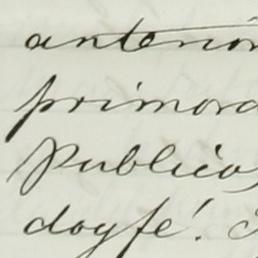 anterior
primord
Publico,
doy fe!